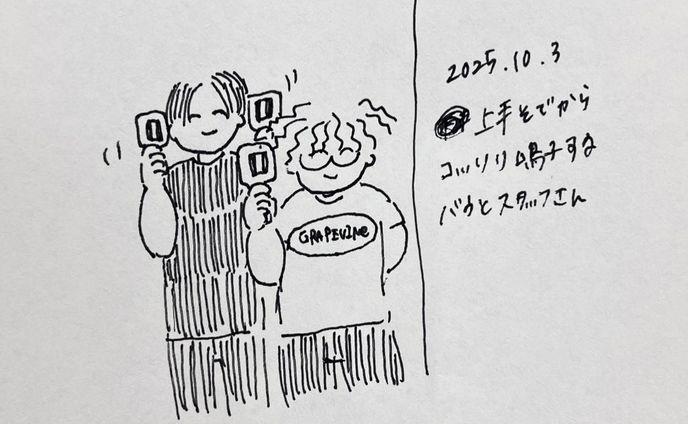 GRAPEVINE
2025.10.3
上手そでから
コッソリ鳴子する
バウとスタッフさん